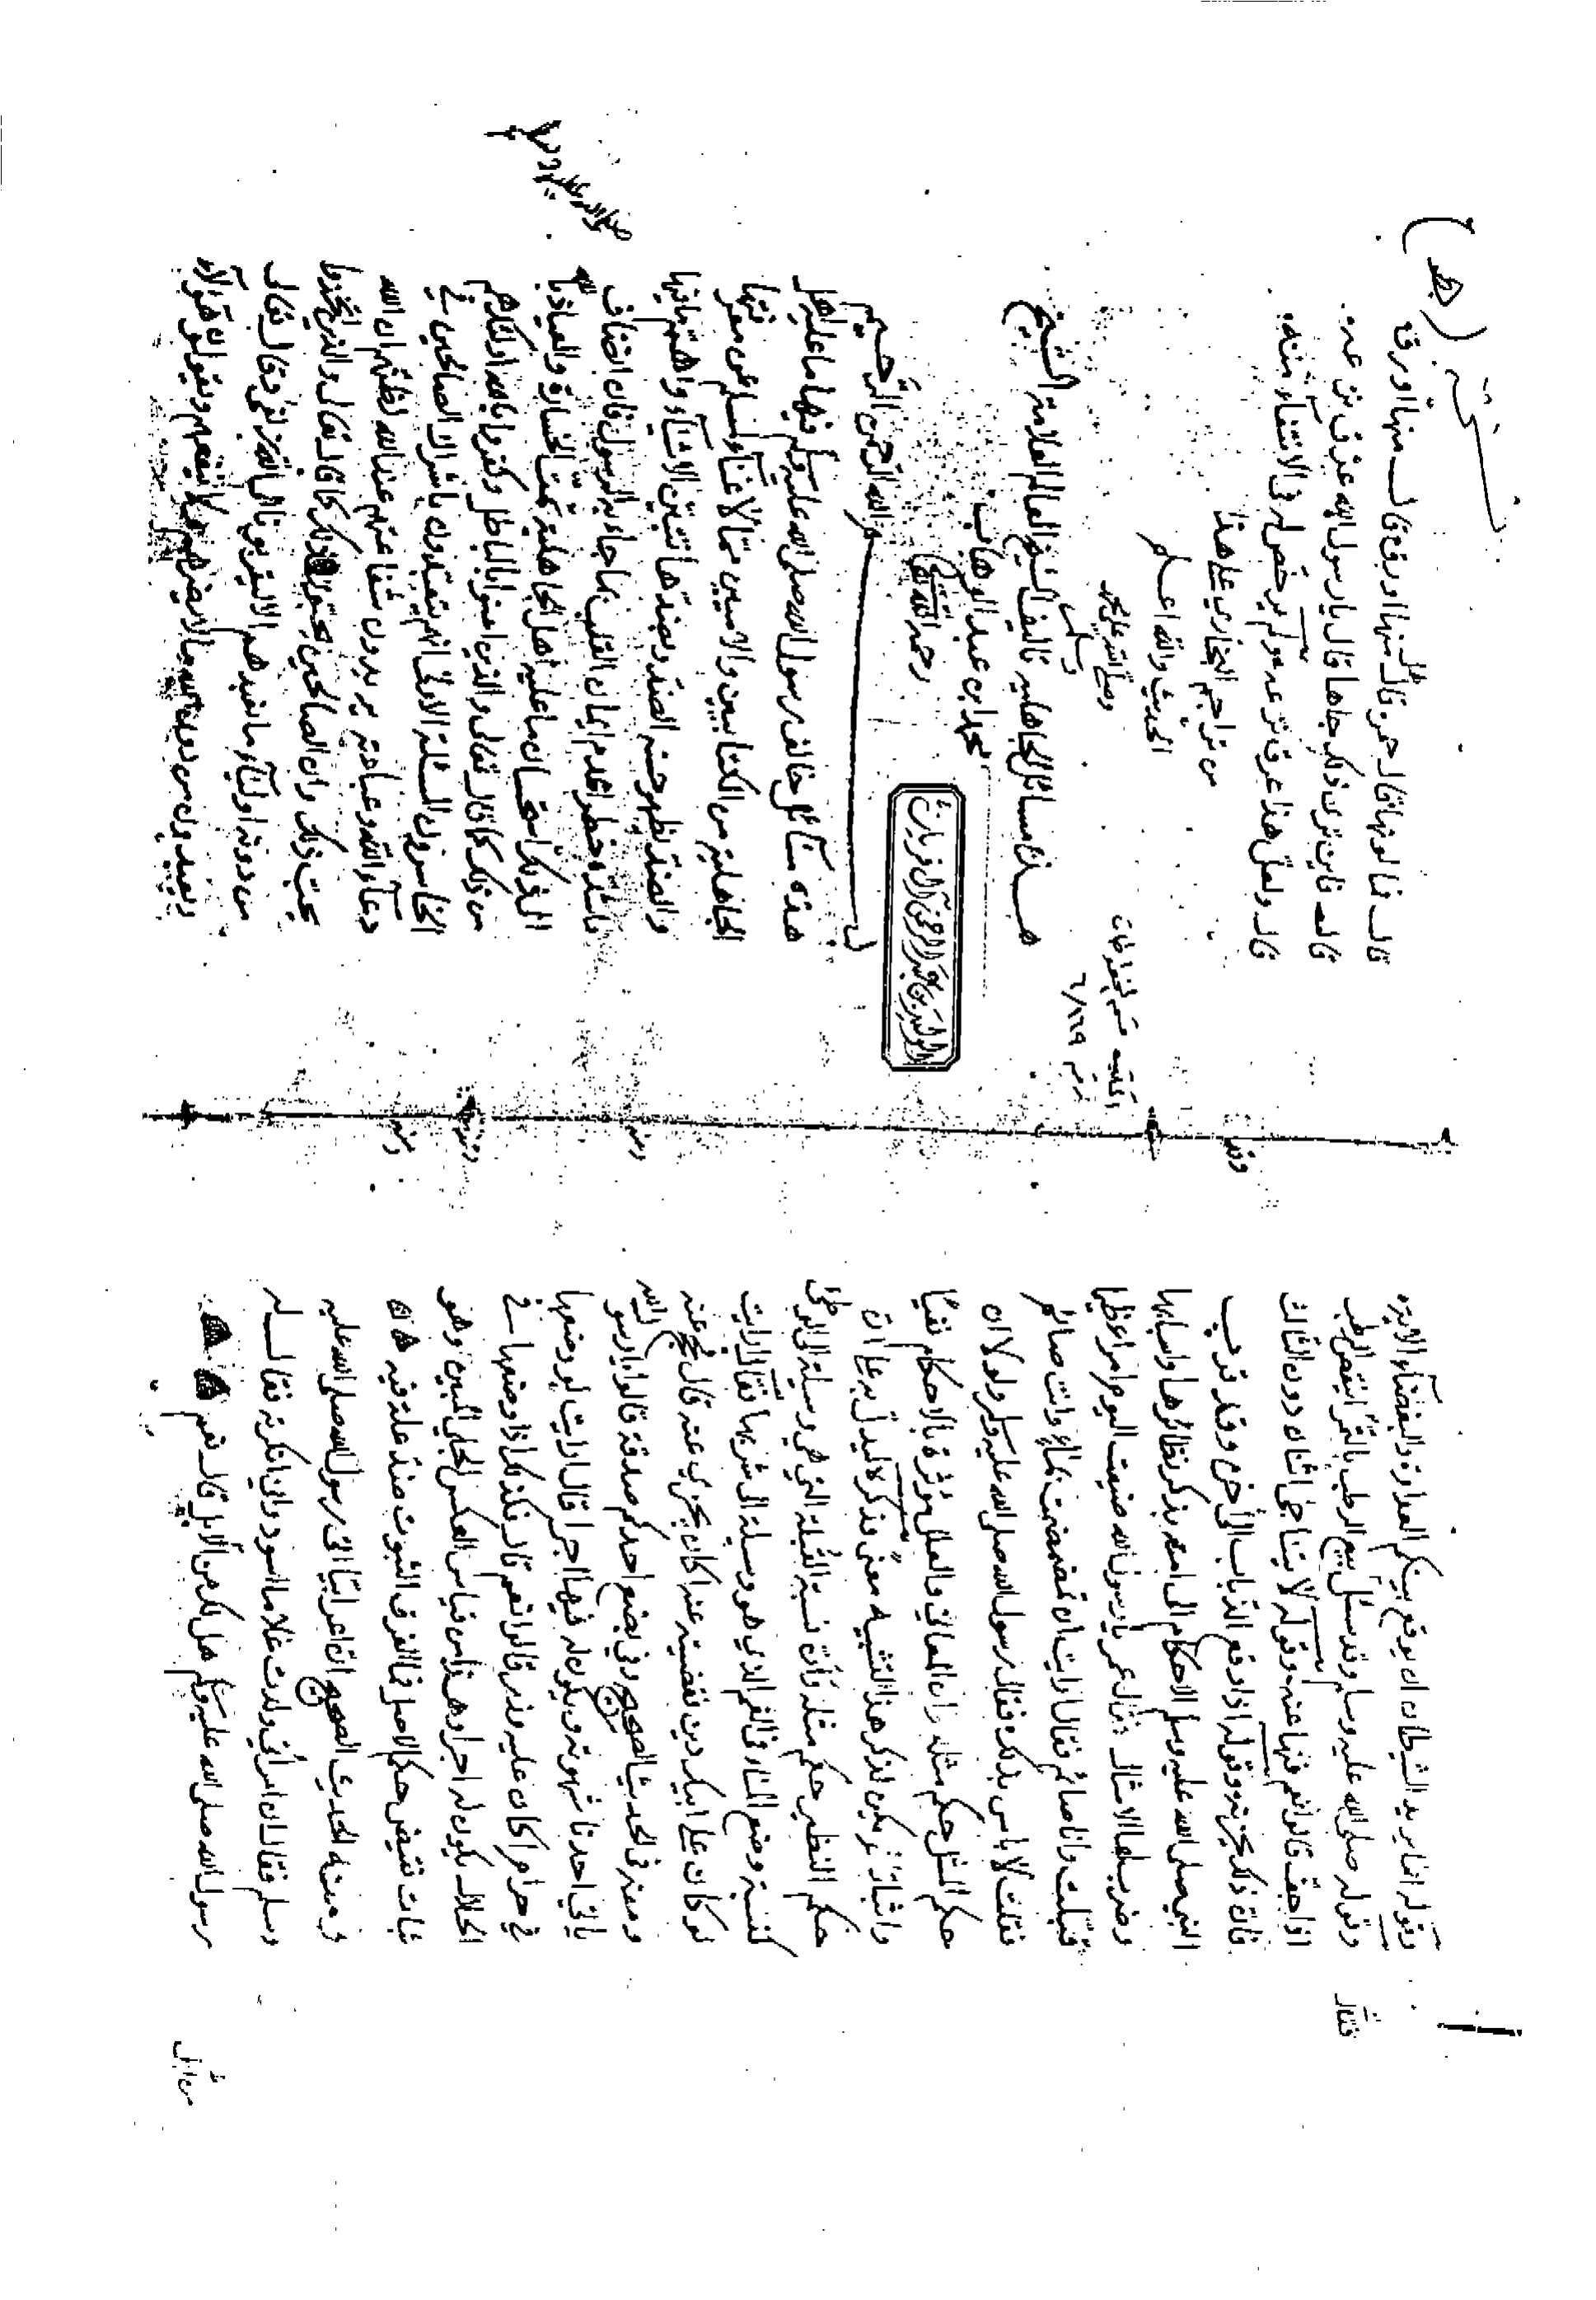 وقوله انما يريد الشيطان ان يوقع بينكم العداوة والبغضاء الآية
وقوله صلى الله عليه وسلم وقد سئل عن بيع الرطب بالتمر اينقص الرطب
اذا جف قالوا نعم فنها عنه وقوله لا يتناجى اثنان دون الثالث
فان ذلك يحزنه وقوله اذا وقع الذباب الى آخره وقد قرب
النبي صلى الله عليه وسلم الاحكام الى امته بذكر نظائرها واسبابها
وضرب لها الامثال فقال عمر يا رسول الله صنعت اليوم امرا عظيما
قبلت وانا صائم فقال ارايت ان تمضمضت بماء وانت صائم
فقلت لا باس بذلك فقال رسول الله صلى الله عليه وسلم ولولا ان
حكم المثل حكم مثله وان المعاني والعلل مؤثرة بالاحكام نفيا
واثباتا لم يكن لذكر هذا التشبيه معنى فذكره ليدل به على ان
حكم النظير حكم مثله وان نسبة القبلة التي هي وسيلة الى الوطئ
كنسبة وضع الماء في الفم الذي هو وسيلة الى شربه فقال ارايت
لو كان على ابيك دين فقضيته عنه اكان يجزي عنه قال فحج عنه
ومنه في الحديث الصحيح وفي بضع احدكم صدقة قالوا يا رسول الله
ياتي احدنا شهوته ويكون له فيها اجر قال ارايت لو وضعها
في حرام اكان عليه وزر قالوا نعم قال فكذلك اذا وضعها في
الحلال يكون له اجر وهذا من قياس العكس الجلي المبين وهو
اثبات نقيض حكم الاصل في الفرع لثبوت ضد علته فيه
ومنه الحديث الصحيح ان اعرابيا اتى رسول الله صلى الله عليه
وسلم فقال ان امراتي ولدت غلاما اسود واني انكرته فقال له
رسول الله صلى الله عليه وسلم هل لك من الابل قال نعم
قالـ فما لونها قال حمر قال هل فيها من اورق قال ان فيها لورقا
قال فانى ترى ذلك جاءها قال يا رسول الله عرق نزعه
قال ولعل هذا عرق نزعه ولم يرخص له في الانتفاء منه
من تراجم البخاري على هذا
الحديث والله اعلم
وصلى الله على محمد
وسلم
المكتبه قسم المخطوطات
٦/٨٦٩
هذه مسائل الجاهلية تاليف الشيخ العالم العلامة الشيخ
محمد ابن عبد الوهاب
رحمه الله تعالى
الوليد بن عبد الرحمن آل فريان
بسم الله الرحمن الرحيم
هذه مسائل خالف رسول الله صلى الله عليه وسلم فيها ما عليه اهل
الجاهلية من الكتابيين والاميين مما لا غناء لمسلم عن معرفتها
والضد يظهر حسنه الضد وبضدها تتبين الاشياء واهم ما فيها
واشده خطرا عدم ايمان القلب بما جاء به الرسول فان انضاف
الى ذلك استحسان ما عليه اهل الجاهلية تمت الخسارة والعياذ بالله
من ذلك كما قال تعالى والذين امنوا بالباطل وكفروا بالله اولئك هم
الخاسرون المسئلة الاولى انهم يتعبدون باشراك الصالحين في
دعاء الله وعبادته يريدون شفاعتهم عند الله لظنهم ان الله
يحب ذلك وان الصالحين يحبونه كما قال تعالى والذين اتخذوا
من دونه اولياء ما نعبدهم الا ليقربونا الى الله زلفى وقال تعالى
ويعبدون من دون الله ما لا يضرهم ولا ينفعهم ويقولون هؤلاء